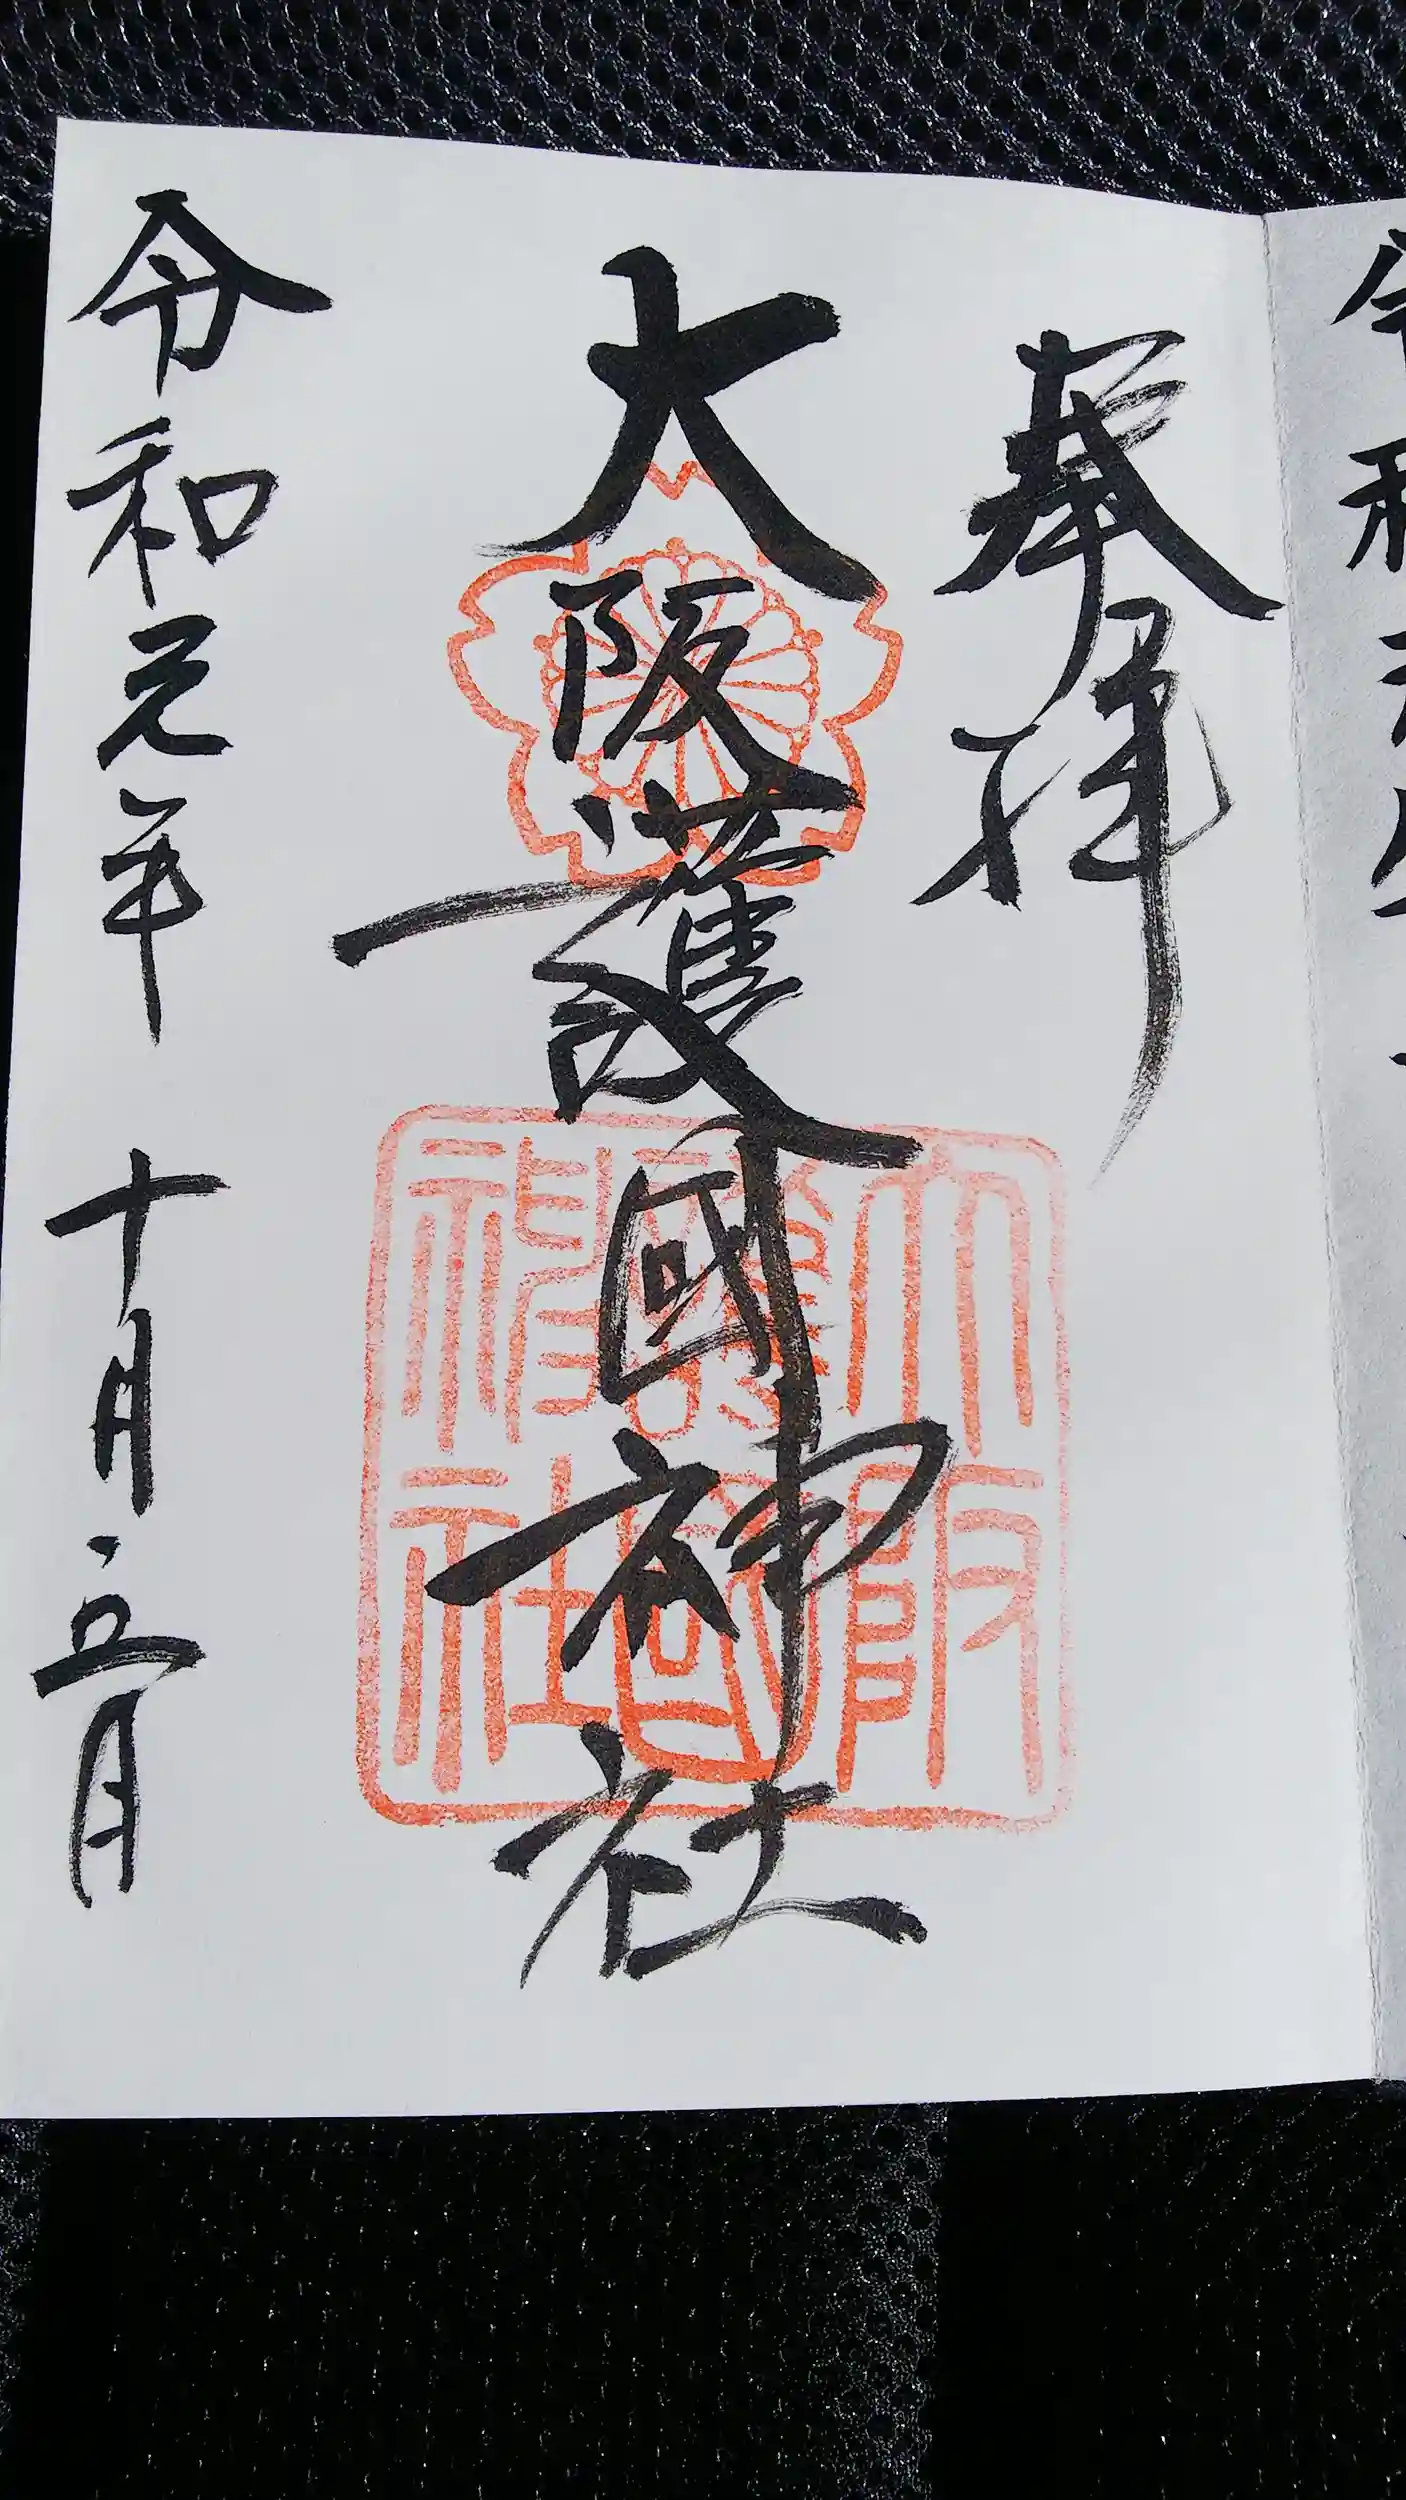 奉拝
大阪護國神社
令和元年十月五日
大阪
護國
神社